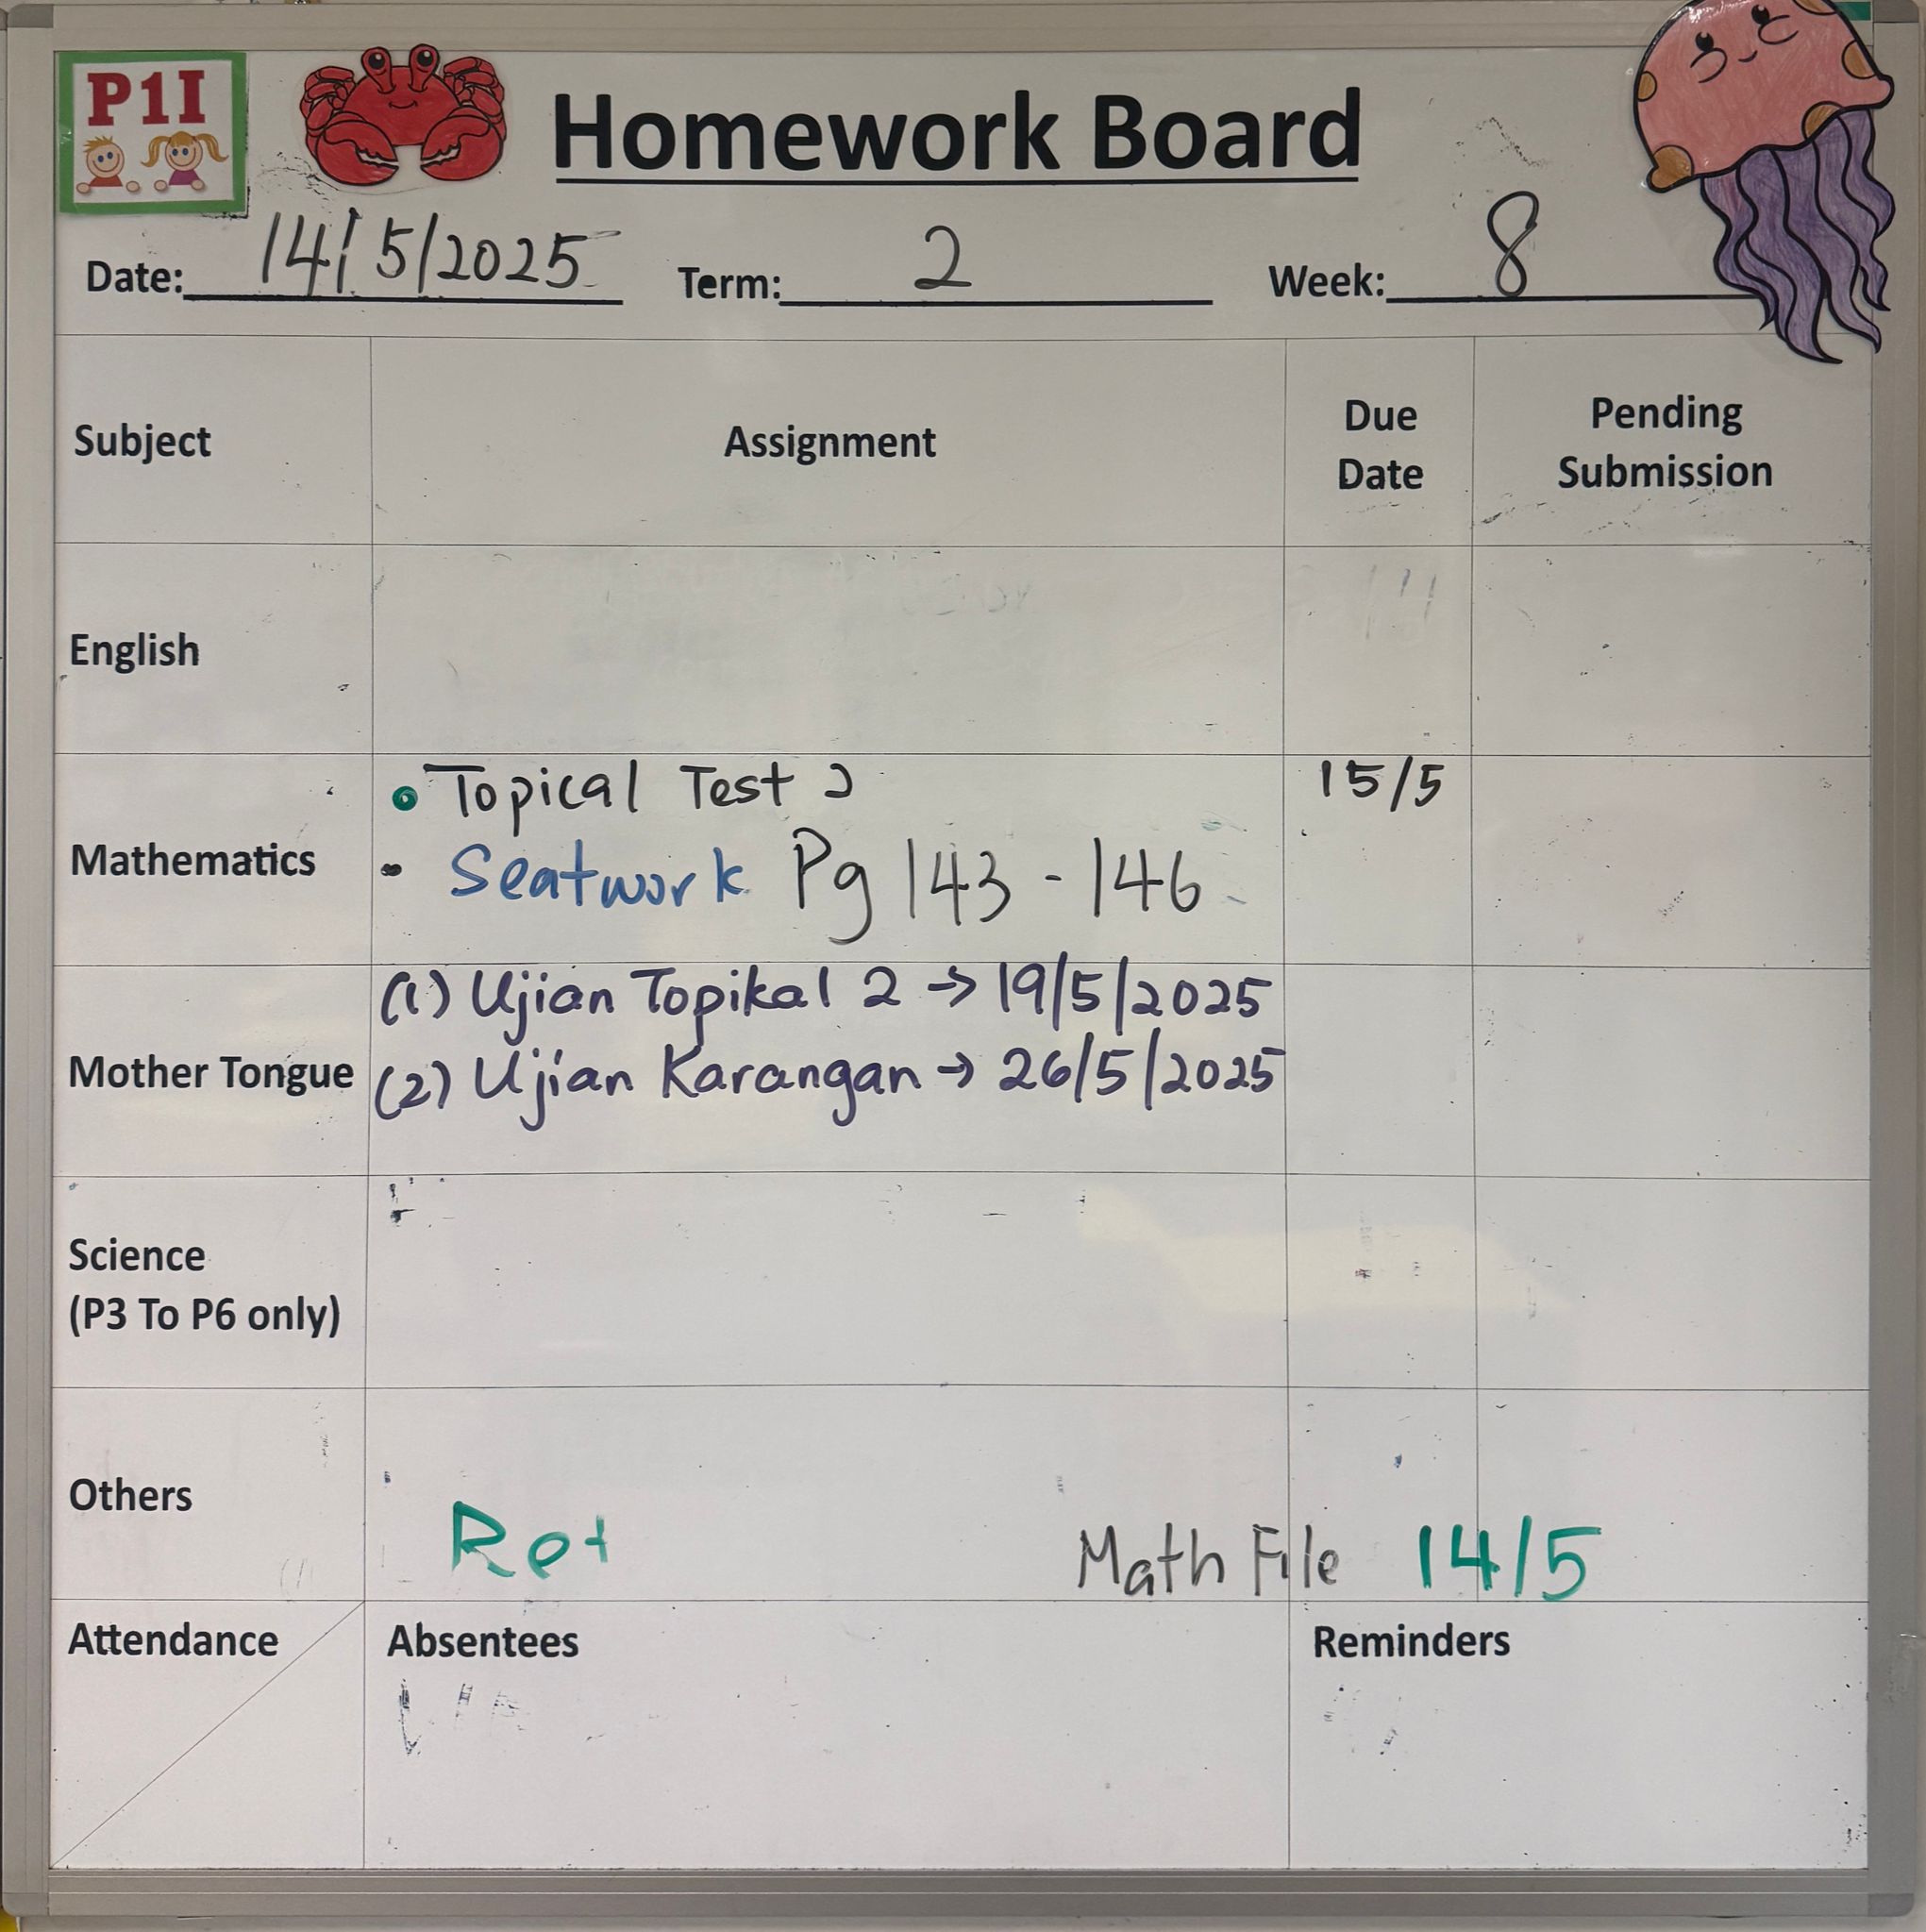 P1I
Homework Board
Date: 14/5/2025 Term: 2 Week: 8
Subject Assignment Due Date Pending Submission
English
Mathematics
• Topical Test 15/5
- Seatwork Pg 143 - 146
Mother Tongue
(1) Ujian Topikal 2 → 19/5/2025
(2) Ujian Karangan → 26/5/2025
Science
(P3 To P6 only)
Others
Ret Math File 14/5
Attendance Absentees Reminders